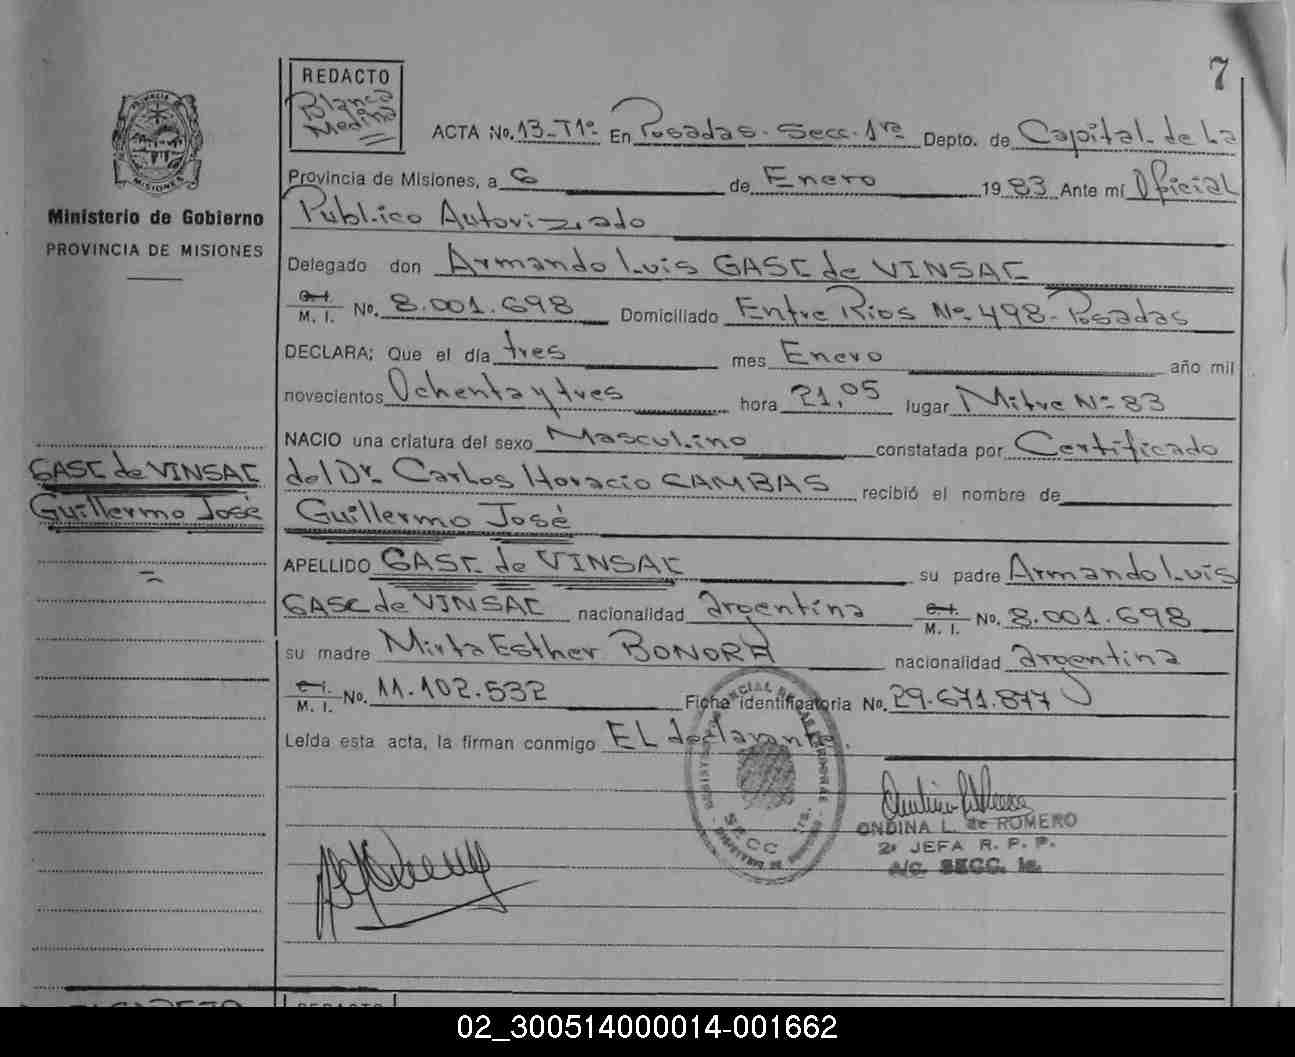 7
REDACTO
Blanca
Medina
ACTA No. 13-T1º En Posadas-Secc-1ra Depto. de Capital-de La
Provincia de Misiones, a 6 de Enero 1983 Ante mí Oficial
Publico Autorizado
PROVINCIA DE
MISIONES
Ministerio de Gobierno
PROVINCIA DE MISIONES
Delegado don Armando Luis GASC de VINSAC
C.I.
M. I. No. 8.001.698 Domiciliado Entre Rios Nº 498-Posadas
DECLARA: Que el día tres mes Enero año mil
novecientos Ochenta y tres hora 21,05 lugar Mitre Nº 83
NACIO una criatura del sexo Masculino constatada por Certificado
del Dr. Carlos Horacio CAMBAS recibió el nombre de
Guillermo José
GASC de VINSAC
Guillermo José
APELLIDO GASC de VINSAC su padre Armando Luis
GASC de VINSAC nacionalidad argentina C.I.
M. I. No. 8.001.698
su madre Mirta Esther BONORA nacionalidad argentina
C.I.
M. I. No. 11.102.532 Ficha identificatoria No. 29.671.877
Leída esta acta, la firman conmigo EL declarante.
SECC 1ra.
ONDINA L. de ROMERO
2º JEFA R. P. P.
A/C. SECC. 1a.
REDACTO
02_300514000014-001662